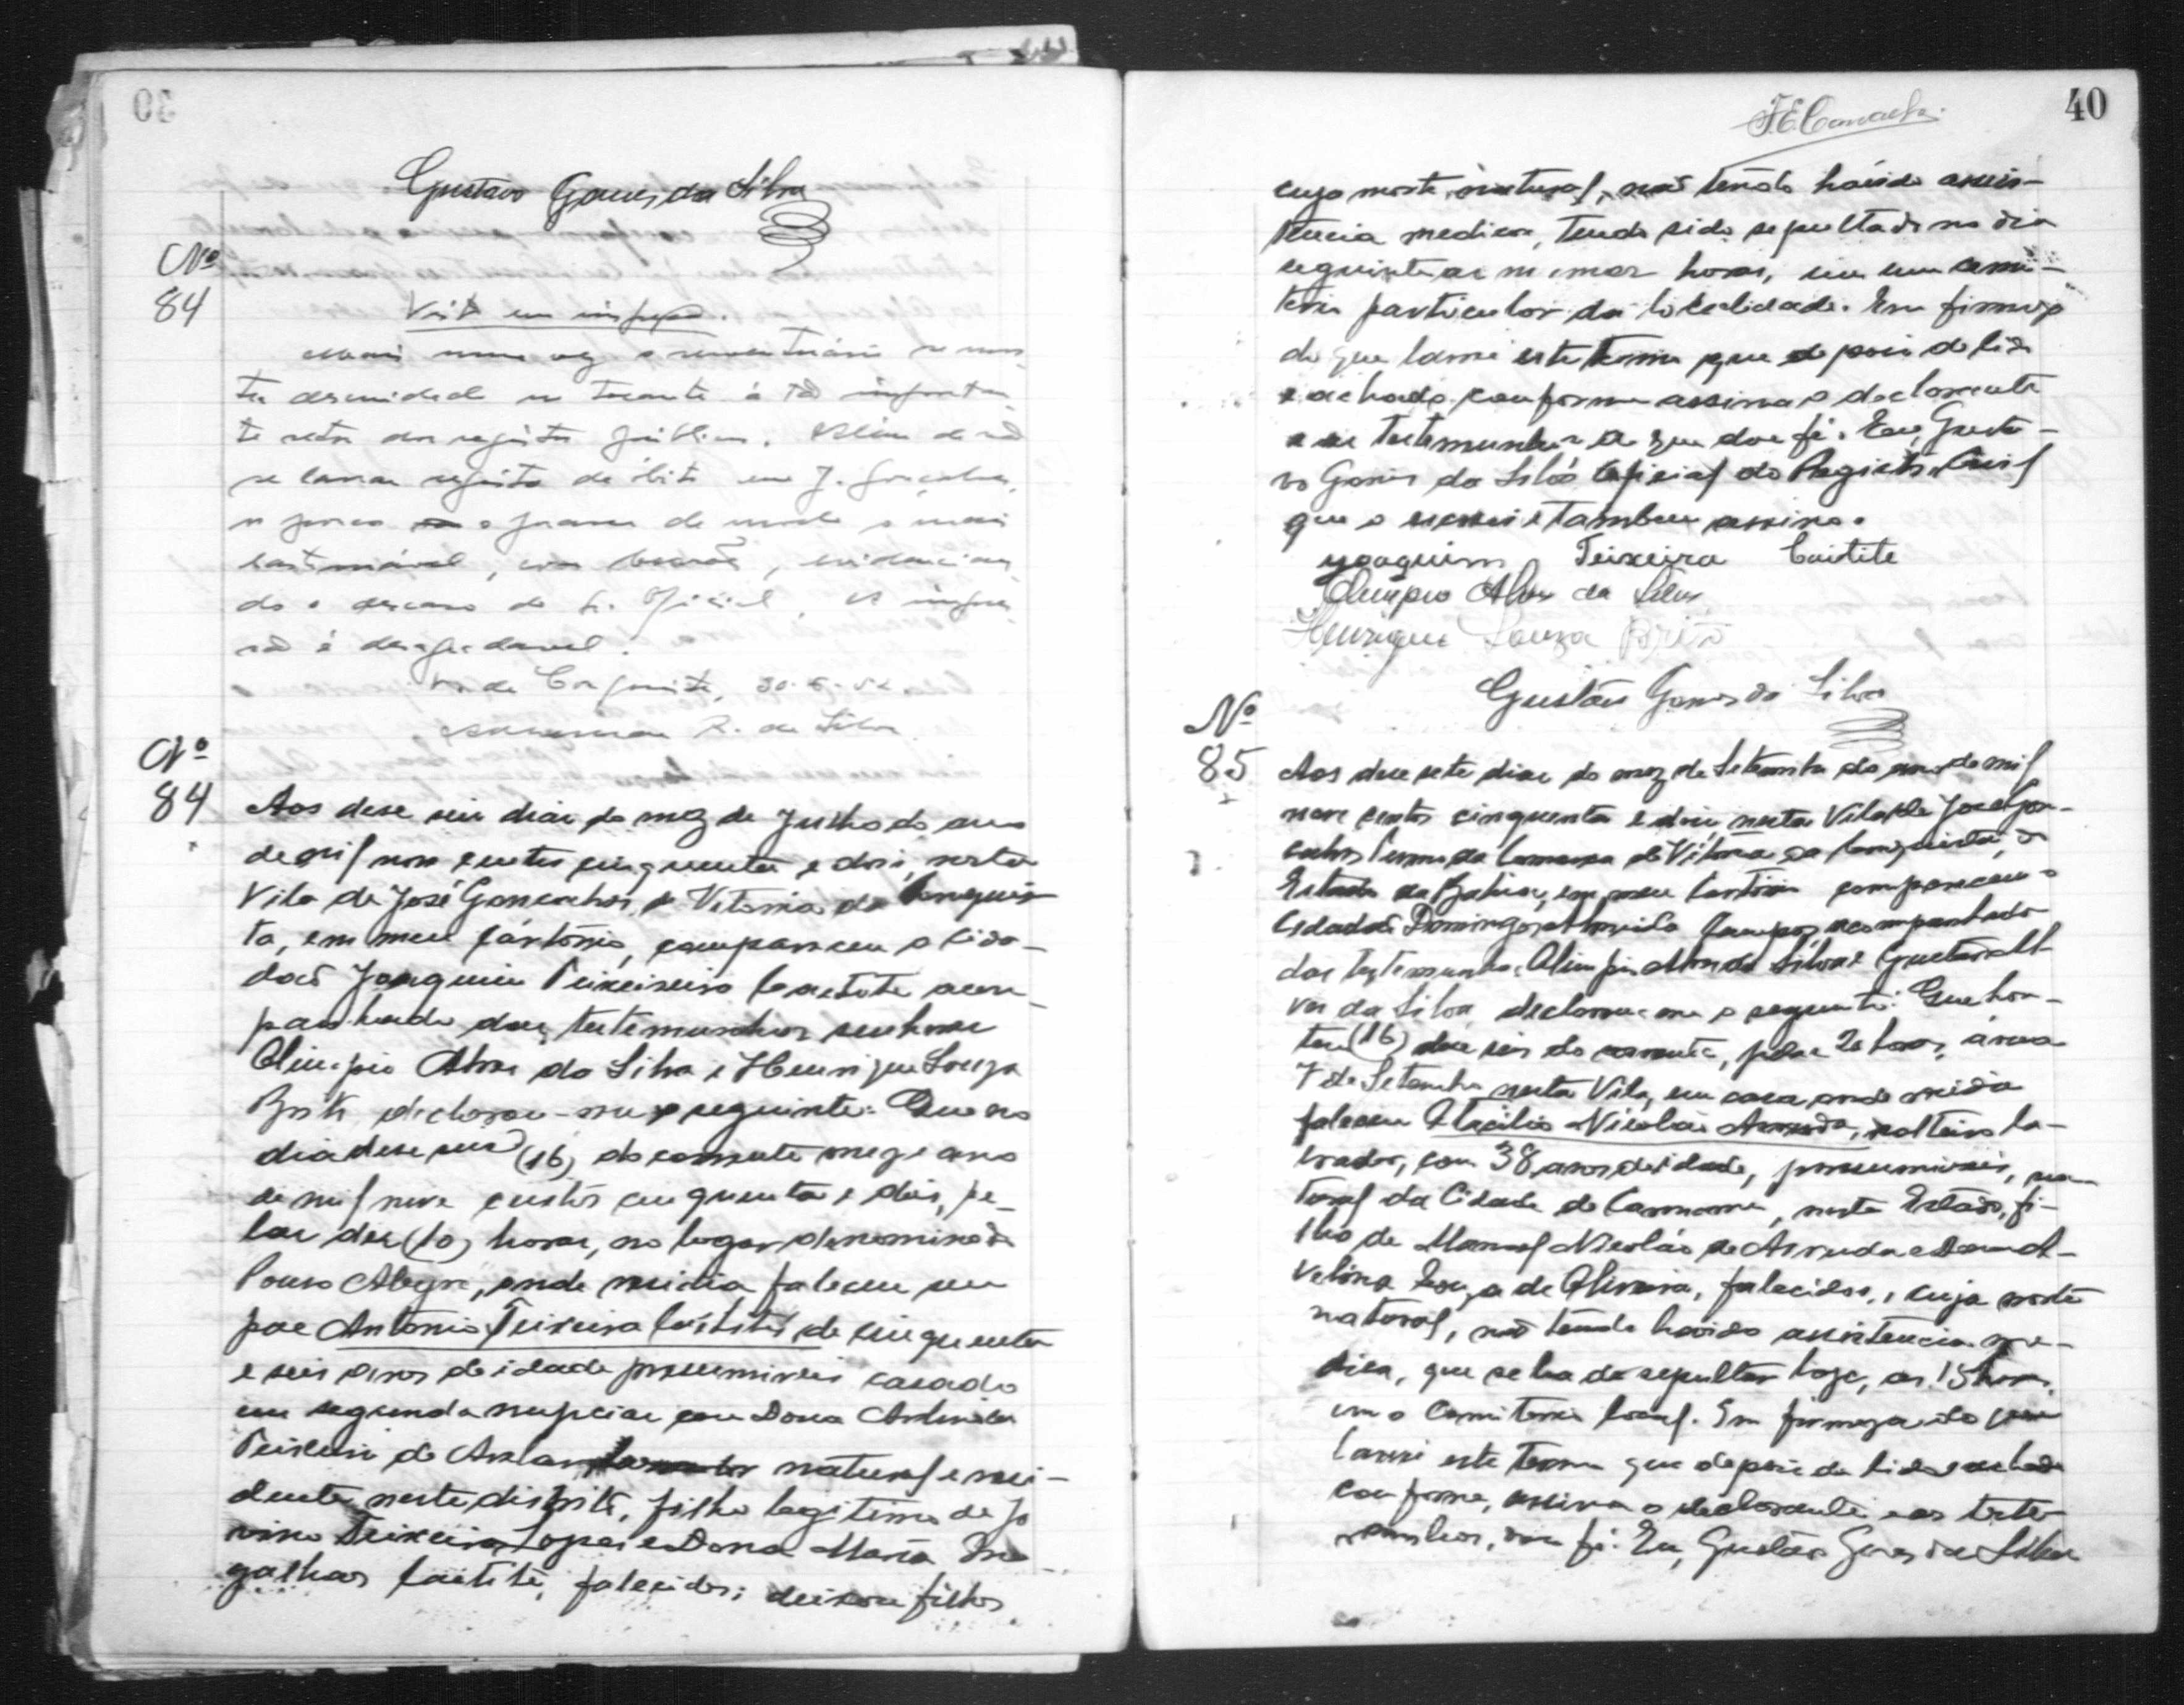 Gustavo Gomes da Silva
Nº
84
Visto em inspeção.
Mais uma vez o serventuário se mos-
tra descuidado no tocante á tão importan-
te setor dos registros públicos. Além de não
se lavrar registro de óbito em J. Gonçalves,
o fazem de modo o mais
lastimável, com borrões, evidencian-
do o descaso do Sr. Oficial. A impres-
são é desagradavel.
V. da Conquista, 30.8.52
R. da Silva
Nº
84
Aos dese seis dias do mez de Julho do ano
de mil nove centos cinquenta e dois, nesta
Vila de José Goncalves, de Vitoria da Conquis-
ta, em meu cartório, compareceu o cida-
dão Joaquim Teixeira Caetité acom-
panhado das testemunhas senhores
Olimpio Alves da Silva e Henrique Souza
Brito declarou-me o seguinte: Que no
dia dese seis (16) do corrente mez e ano
de mil nove centos cinquenta e dois, pe-
las dez (10) horas, no logar denominado
Pouso Alegre, onde residia faleceu seu
pae Antonio Teixeira Caitité, de cinquenta
e seis anos de idade presumiveis casado
em segunda nupcias com Dona
Teixeira de natural e resi-
dente neste distrito, filho legitimo de Jo
vino Teixeira Lopes e Dona Maria
galhas Caetité, falecidos; deixou filhos
40
cuja morte natural, não tendo havido assis-
tencia medica, tendo sido sepultado no dia
seguinte as mesmas horas, em um cemi-
terio particular da localidade. Em firmeza
do que lavrei este termo que depois de lido
e achado conforme assina o declarante
e as testemunhas do que dou fé. Eu, Gusta-
vo Gomes da Silva Oficial do Registro Civil
que o escrevi e tambem assino.
yoaquim Teixeira Caitite
Olimpio Alves da Silva
Henrique Souza Brito
Gustavo Gomes da Silva
Nº
85
Aos dese sete dias do mez de Setembro do ano de mil
nove centos cinquenta e dois nesta Vila de José Gon-
calves Termo da Comarca de Vitoria da Conquista, do
Estado da Bahia, em meu Cartorio compareceu o
Cidadão Domingos Campos, acompanhado
das testemunhas Olimpio Alves da Silva e Gustavo Al-
ves da Silva declarou-me o seguinte: Que hon-
tem (16) dese seis do corrente, pelas 20 horas, á rua
7 de Setembro nesta Vila, em casa, onde residia
faleceu Otacilio Nicolau Arruda, solteiro la-
vrador, com 38 anos de idade, presumiveis, na-
tural da Cidade de, neste Estado, fi-
lho de Manoel Nicolau de Arruda e Dona A-
velina Souza de Oliveira, falecidos, cuja morte
natural, não tendo havido assistencia me-
dica, que se ha de sepultar hoje, as 15 horas,
em o Cemiterio local. Em firmeza do que
lavrei este termo que depois de lido e achado
conforme, assina o declarante e as teste-
munhas, dou fé. Eu, Gustavo Gomes da Silva